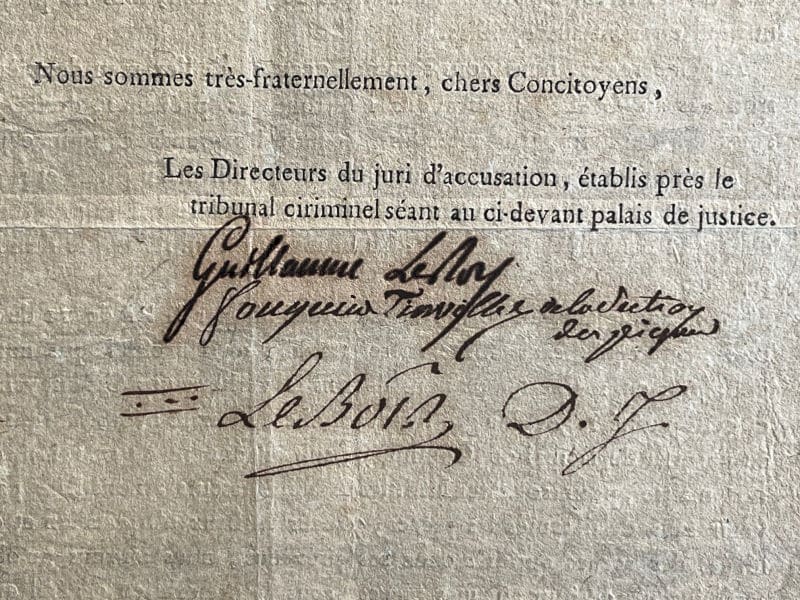 Nous sommes très-fraternellement, chers Concitoyens,
Les Directeurs du juri d'accusation, établis près le
tribunal ciriminel séant au ci-devant palais de justice.
Guillaume LeRoy
Fouquier Tinville de la Section
des piques
LeBois, D. J.